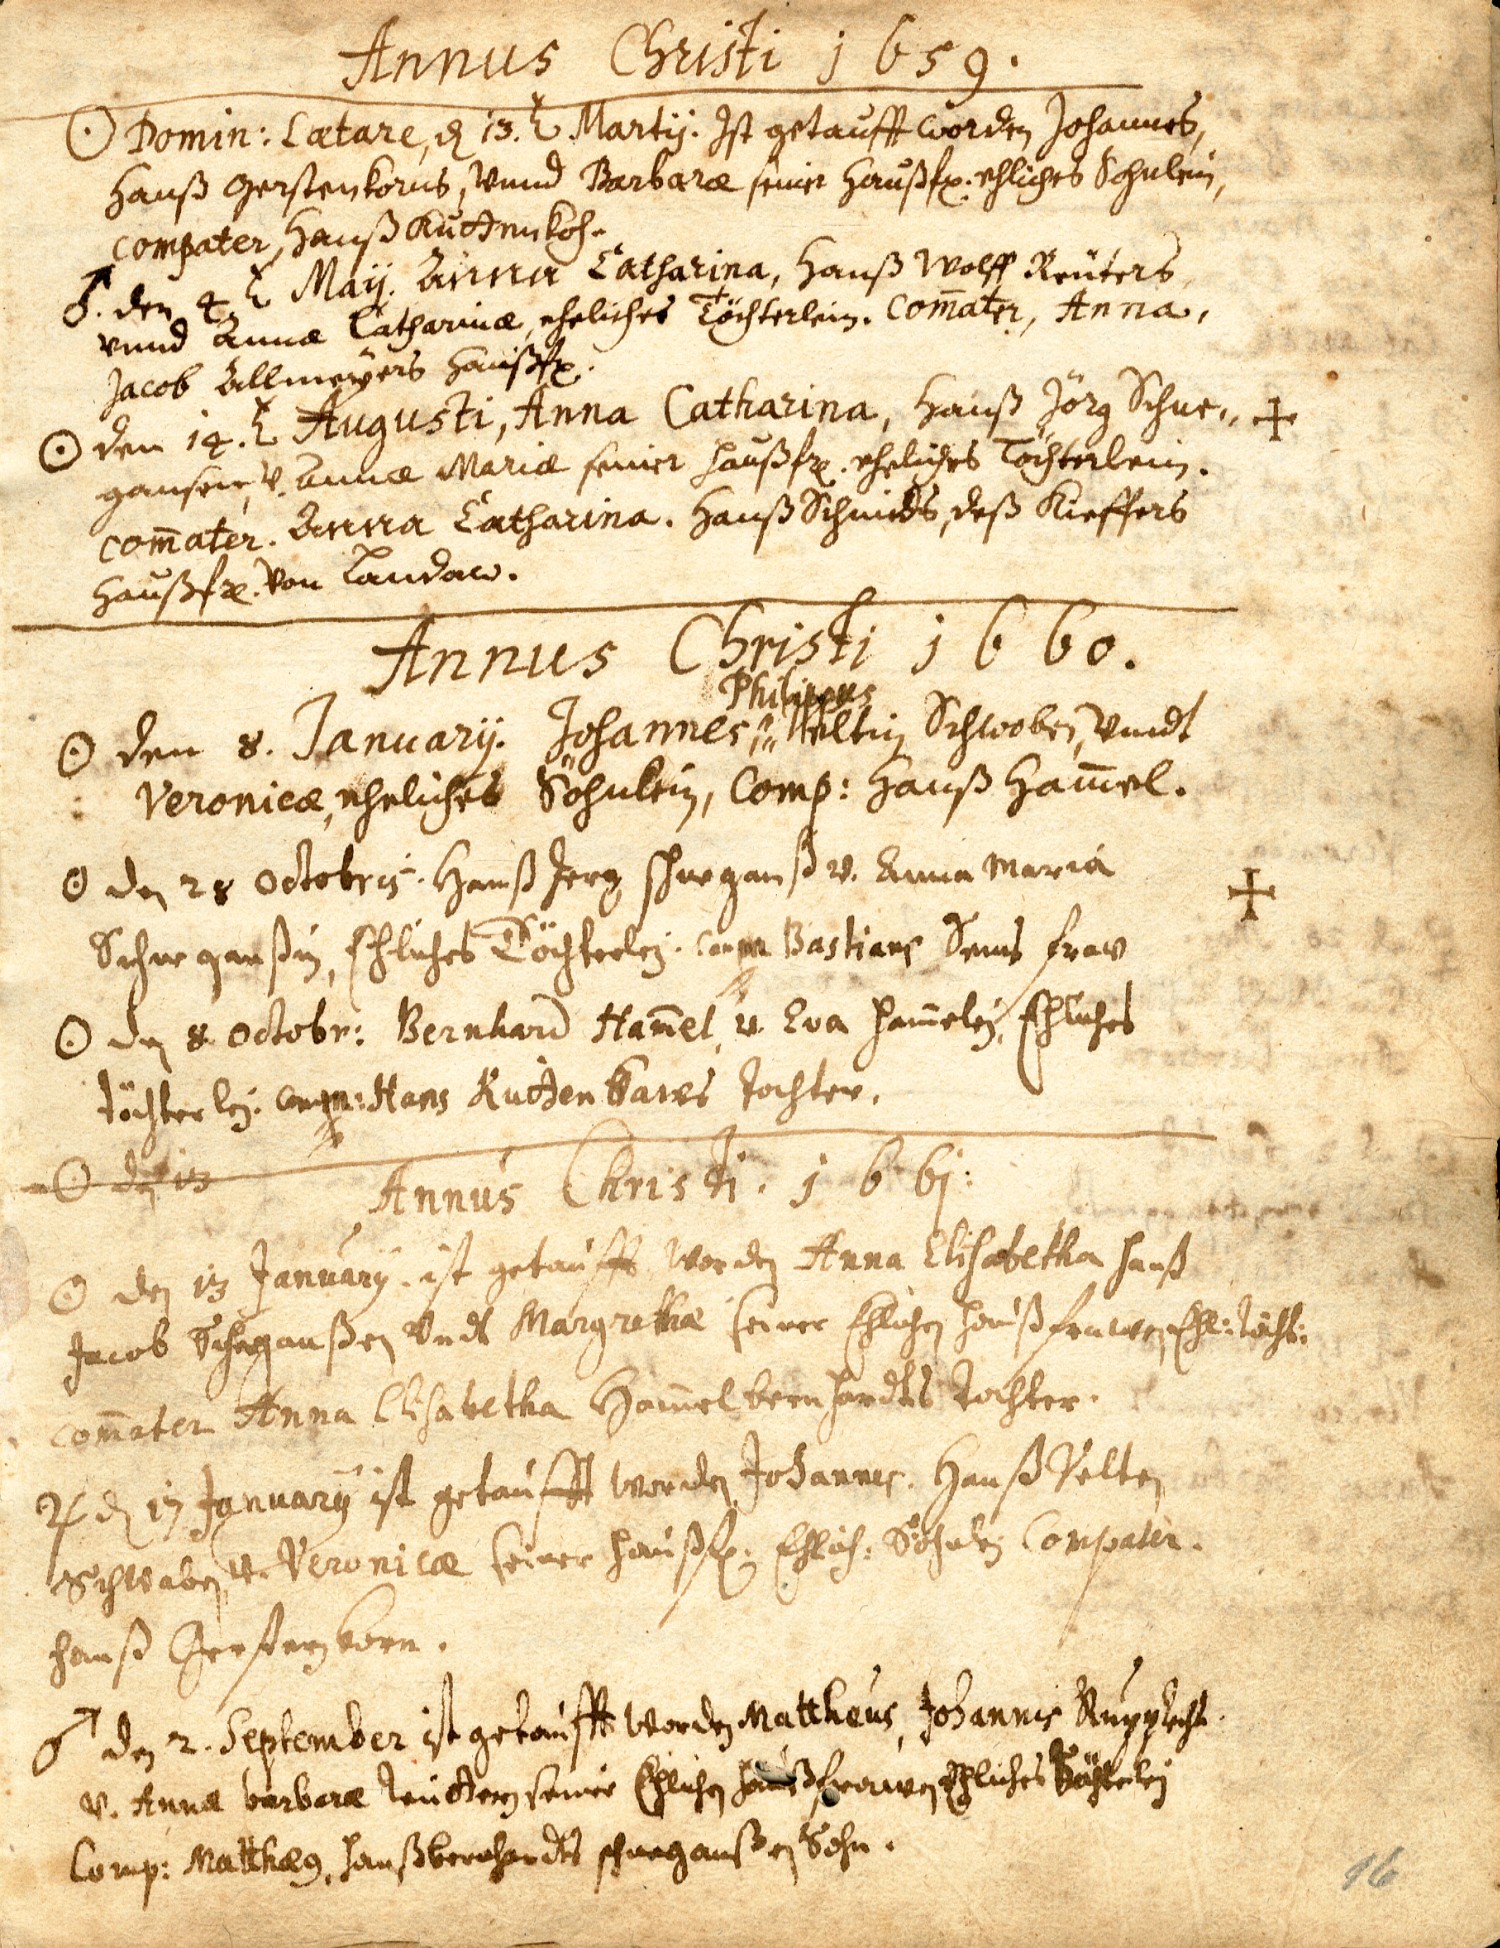 Annus Christi 1659.
☉ Domin: Lætare, d 13. Martij. Ist getaufft worden Johannes,
Hanß Gerstenkorns, vnnd Barbaræ seiner Haußfr. ehliches Söhnlein,
compater, Hanß Kuttenkoh.
♂. den 4. Maij. Anna Catharina, Hanß Wolff Reüters
vnnd Annæ Catharinæ, eheliches Töchterlein. Com̄ater, Anna,
Jacob Allmeÿers Haußfr.
☉ den 14. Augusti, Anna Catharina, Hanß Jörg Schne„
gansen, v. Annæ Mariæ seiner Haußfr. eheliches Töchterlein.
com̄ater. Anna Catharina. Hanß Schmids, deß Kieffers
Haußfr. von Landaw.
Annus Christi 1660.
Philippus
☉ den 8. Januarij. Johannes, Veltin Schwoben, vnndt
Veronicæ, eheliches Söhnlein, Comp: Hanß Ham̄el.
☉ den 28 Octobris. Hanß Jerg Schneganß v. Anna Maria
Schneganßin, Ehliches Töchterlein. Bastians frav
☉ den 8. Octobr: Bernhard Ham̄el, v. Eva Ham̄elin, Ehliches
töchterlein. Hans Tochter.
☉ den 13
Annus Christi. 1661:
☉ den 13 Januarij. ist getaufft worden Anna Elisabetha Hanß
Jacob Schneganßen Undt Margrethæ seiner Ehlichen Haußfrawen, Ehl: töcht:
com̄ater Anna Elisabetha Ham̄el bernhardts Tochter.
♃ d 17 Januarij ist getaufft worden Johannes. Hanß Velten
Schwaben, v. Veronicæ seiner Haußfr. Ehlich: Söhnlein Compater.
Hanß Gerstenkorn.
♂ den 2. September ist getaufft worden Matthæus, Johannis Rupprecht.
v. Annæ barbaræ seiner Ehlichen Haußfrawen Ehliches
Comp: Matthæus, Hanß bernhardts schneganßen Sohn.
16